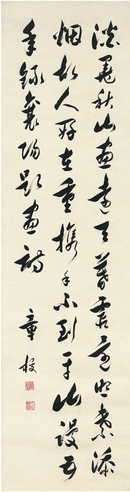 淡墨秋山畫遠天暮霞還照紫添
烟故人好在重攜手不到平山謾五
年錄襄陽題畫詩
章梫